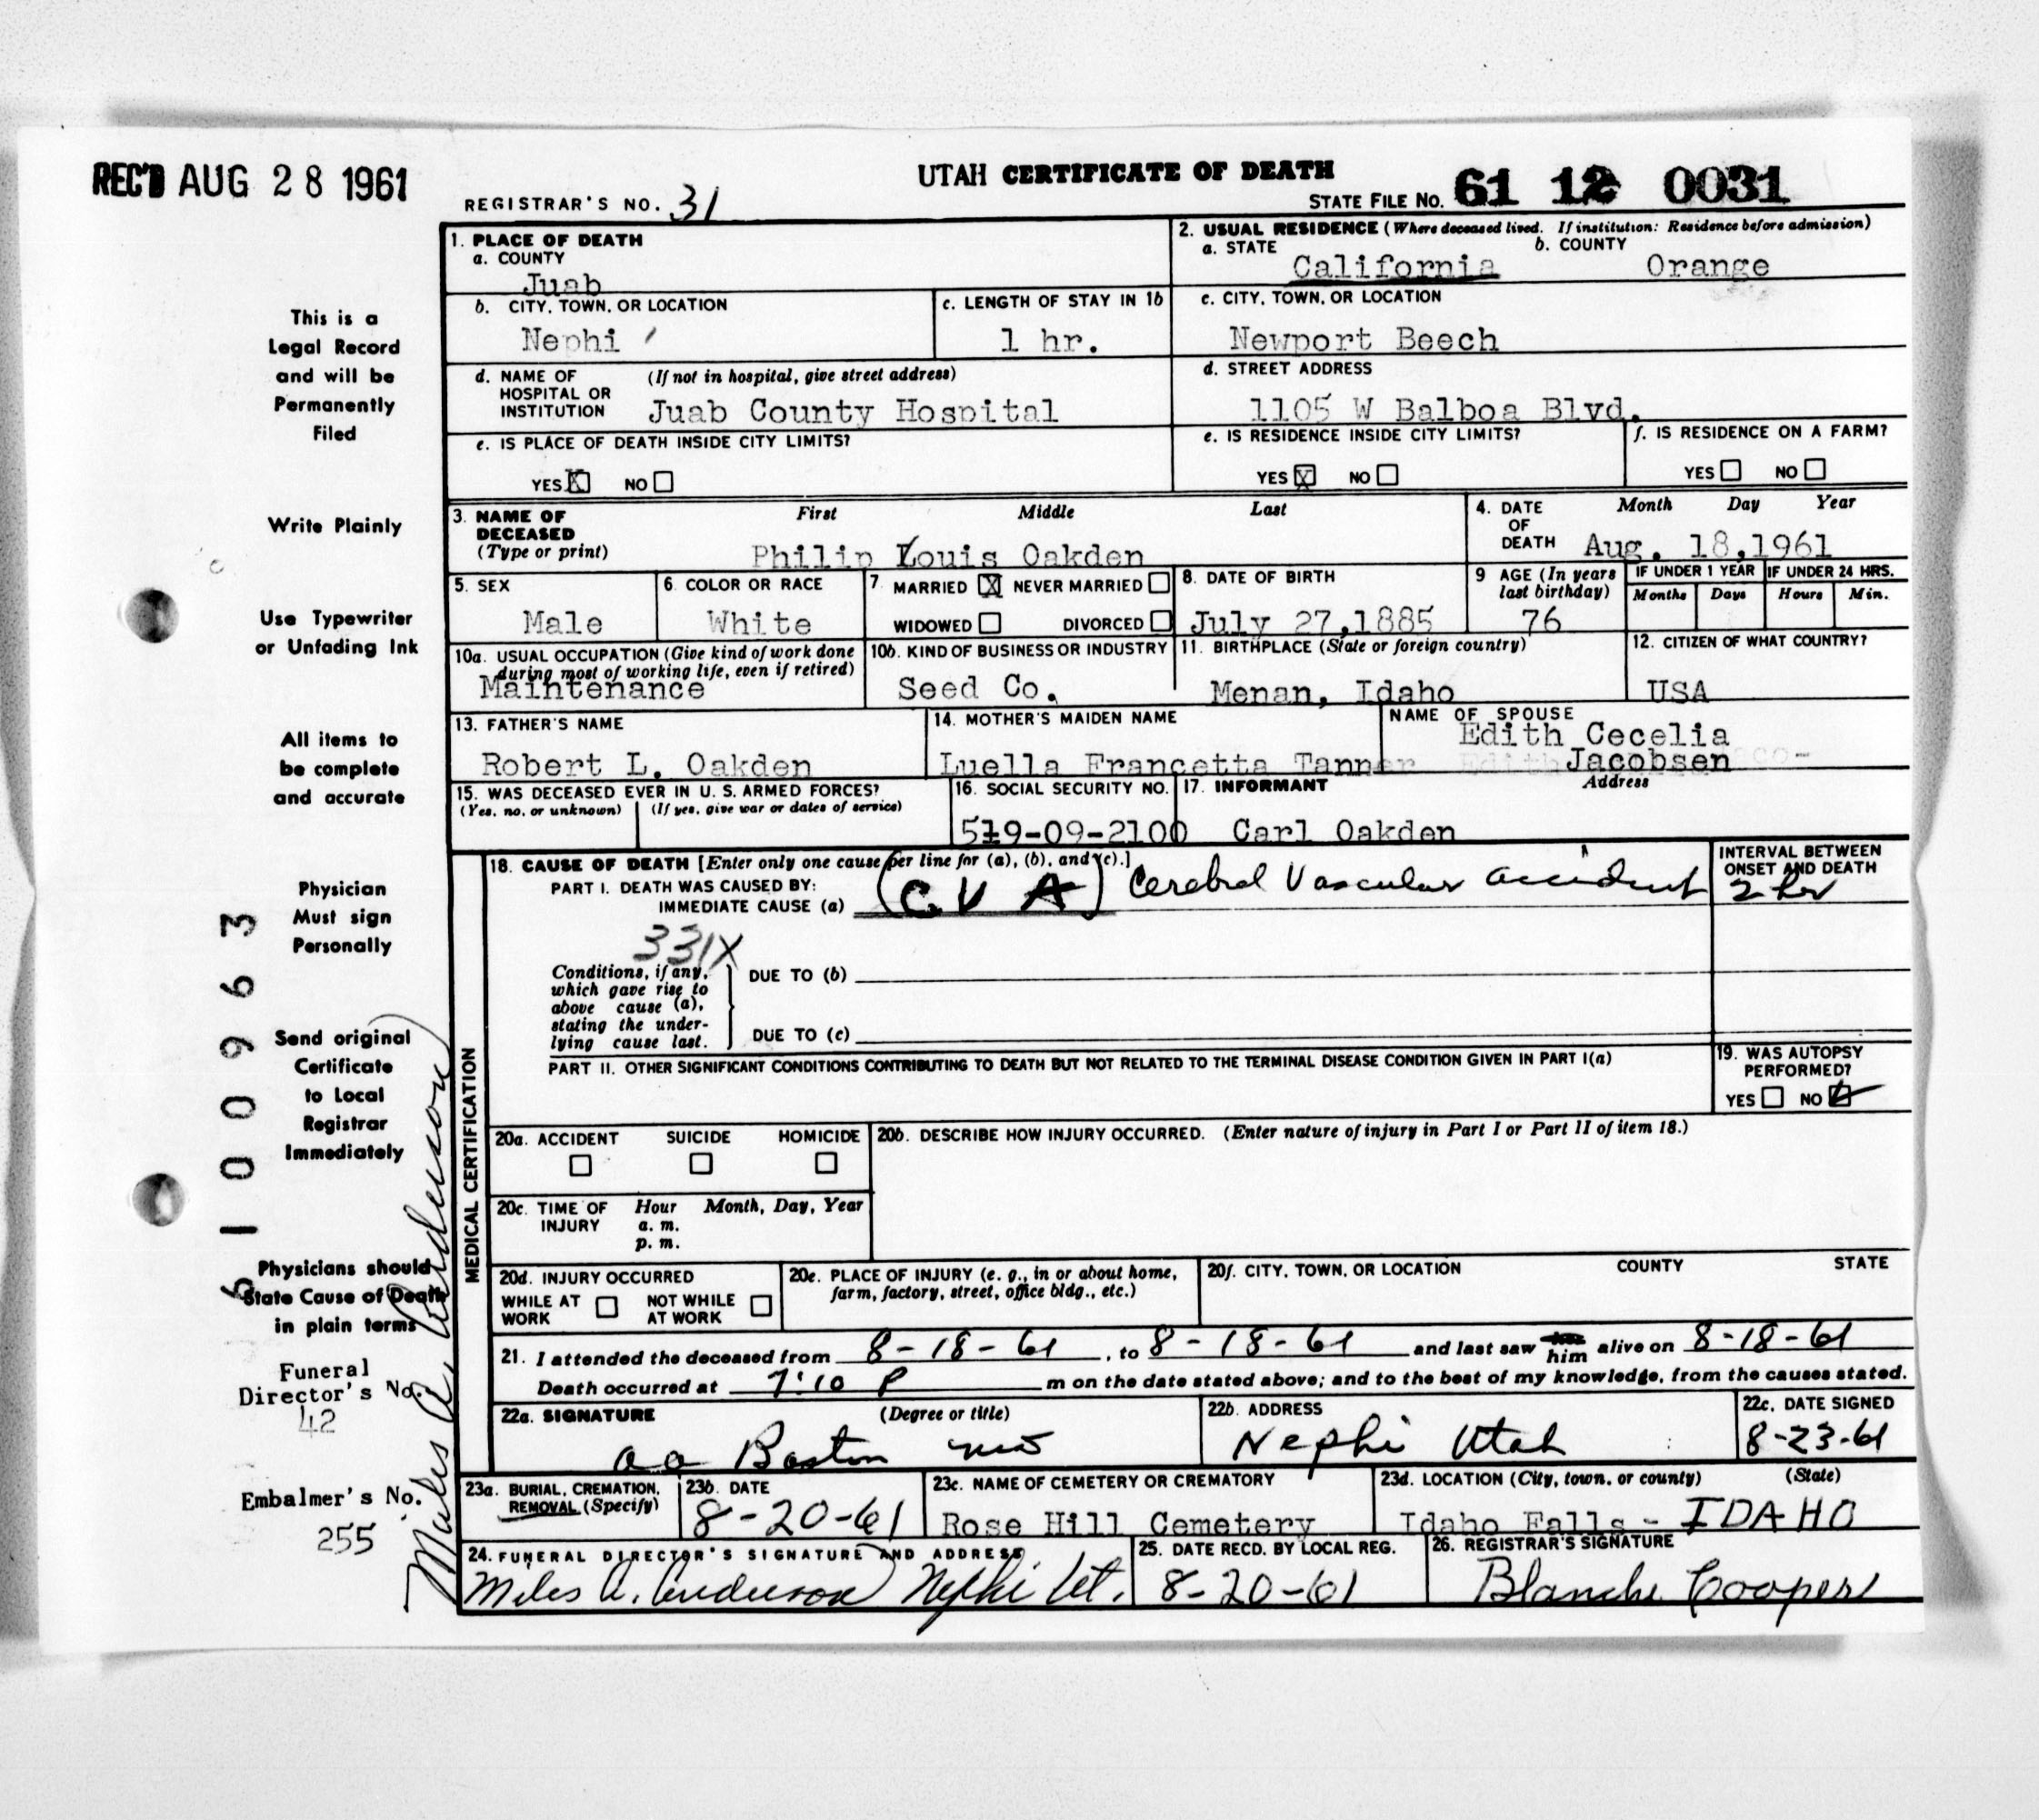 REC'D AUG 28 1961
UTAH CERTIFICATE OF DEATH
REGISTRAR'S NO. 31
STATE FILE NO. 61 12 0031
1. PLACE OF DEATH
a. COUNTY
Juab
2. USUAL RESIDENCE (Where deceased lived. If institution: Residence before admission)
a. STATE California b. COUNTY Orange
b. CITY, TOWN, OR LOCATION
Nephi
c. LENGTH OF STAY IN 1b
1 hr.
c. CITY, TOWN, OR LOCATION
Newport Beech
d. NAME OF HOSPITAL OR INSTITUTION (If not in hospital, give street address)
Juab County Hospital
d. STREET ADDRESS
1105 W Balboa Blvd.
e. IS PLACE OF DEATH INSIDE CITY LIMITS?
YES X NO
e. IS RESIDENCE INSIDE CITY LIMITS?
YES X NO
f. IS RESIDENCE ON A FARM?
YES NO
3. NAME OF DECEASED (Type or print)
First Middle Last
Philip Louis Oakden
4. DATE OF DEATH Month Day Year
Aug. 18,1961
5. SEX
Male
6. COLOR OR RACE
White
7. MARRIED X NEVER MARRIED
WIDOWED DIVORCED
8. DATE OF BIRTH
July 27,1885
9 AGE (In years last birthday)
76
IF UNDER 1 YEAR
Months Days
IF UNDER 24 HRS.
Hours Min.
10a. USUAL OCCUPATION (Give kind of work done during most of working life, even if retired)
Maintenance
10b. KIND OF BUSINESS OR INDUSTRY
Seed Co.
11. BIRTHPLACE (State or foreign country)
Menan, Idaho
12. CITIZEN OF WHAT COUNTRY?
USA
13. FATHER'S NAME
Robert L. Oakden
14. MOTHER'S MAIDEN NAME
Luella Francetta Tanner
NAME OF SPOUSE
Edith Cecelia
Jacobsen
15. WAS DECEASED EVER IN U. S. ARMED FORCES?
(Yes, no, or unknown) (If yes, give war or dates of service)
16. SOCIAL SECURITY NO.
519-09-2100
17. INFORMANT Address
Carl Oakden
MEDICAL CERTIFICATION
18. CAUSE OF DEATH [Enter only one cause per line for (a), (b), and (c).]
PART I. DEATH WAS CAUSED BY:
IMMEDIATE CAUSE (a) (C V A) Cerebral Vascular accident
INTERVAL BETWEEN ONSET AND DEATH
2 hr
331X
Conditions, if any, which gave rise to above cause (a), stating the underlying cause last.
DUE TO (b)
DUE TO (c)
PART II. OTHER SIGNIFICANT CONDITIONS CONTRIBUTING TO DEATH BUT NOT RELATED TO THE TERMINAL DISEASE CONDITION GIVEN IN PART I(a)
19. WAS AUTOPSY PERFORMED?
YES NO
20a. ACCIDENT SUICIDE HOMICIDE
20b. DESCRIBE HOW INJURY OCCURRED. (Enter nature of injury in Part I or Part II of item 18.)
20c. TIME OF INJURY Hour Month, Day, Year
a. m.
p. m.
20d. INJURY OCCURRED
WHILE AT WORK NOT WHILE AT WORK
20e. PLACE OF INJURY (e. g., in or about home, farm, factory, street, office bldg., etc.)
20f. CITY, TOWN, OR LOCATION COUNTY STATE
21. I attended the deceased from 8-18-61, to 8-18-61 and last saw him alive on 8-18-61
Death occurred at 7:10 P m on the date stated above; and to the best of my knowledge, from the causes stated.
22a. SIGNATURE (Degree or title)
22b. ADDRESS
Nephi Utah
22c. DATE SIGNED
8-23-61
23a. BURIAL, CREMATION, REMOVAL (Specify)
23b. DATE
8-20-61
23c. NAME OF CEMETERY OR CREMATORY
Rose Hill Cemetery
23d. LOCATION (City, town, or county) (State)
Idaho Falls - IDAHO
24. FUNERAL DIRECTOR'S SIGNATURE AND ADDRESS
Miles A. Anderson Nephi Ut.
25. DATE RECD. BY LOCAL REG.
8-20-61
26. REGISTRAR'S SIGNATURE
Blanche Cooper
This is a
Legal Record
and will be
Permanently
Filed
Write Plainly
Use Typewriter
or Unfading Ink
All items to
be complete
and accurate
Physician
Must sign
Personally
Send original
Certificate
to Local
Registrar
Immediately
Physicians should
State Cause of Death
in plain terms
Funeral
Director's No.
42
Embalmer's No.
255
6100963
Miles A. Anderson